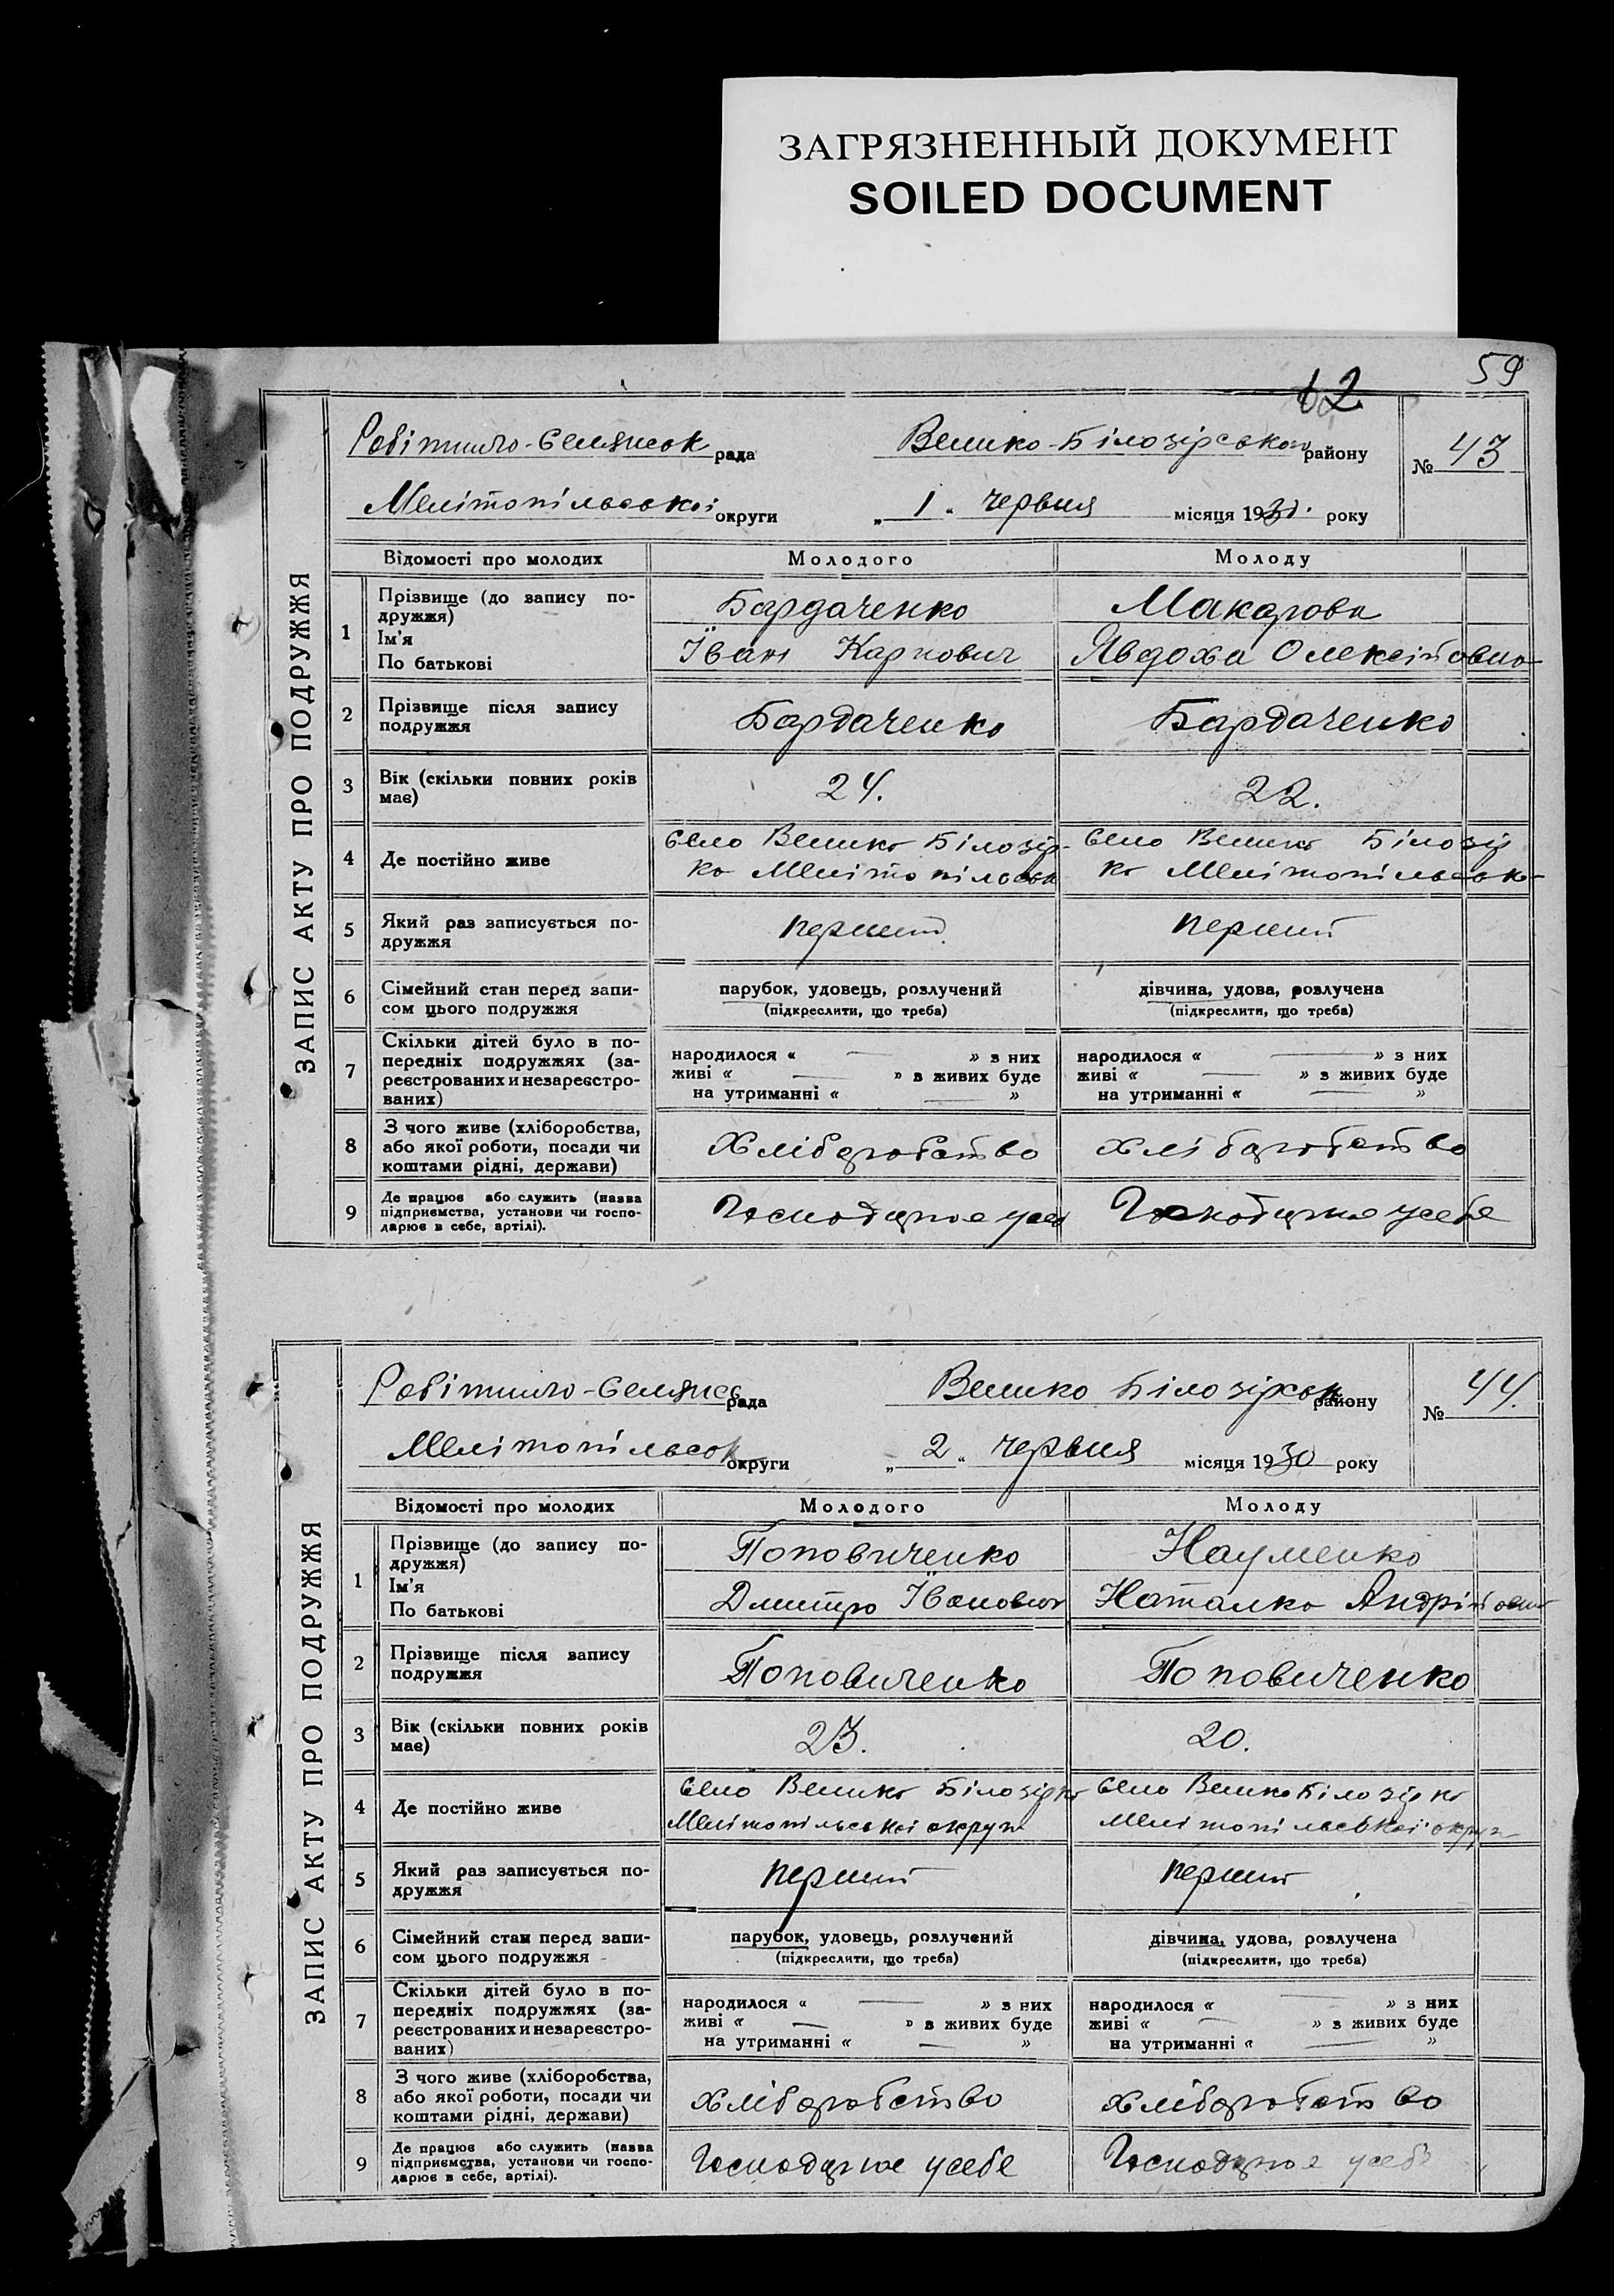 ЗАГРЯЗНЕННЫЙ ДОКУМЕНТ
SOILED DOCUMENT
59
62
ЗАПИС АКТУ ПРО ПОДРУЖЖЯ
Робітничо-Селянськ рада Велико-Білозірського району № 43
Мелітопільської округи „ 1 “ червня місяця 1930 року
Відомості про молодих Молодого Молоду
1 Прізвище (до запису по-
дружжя)
Ім'я
По батькові
Бардаченко Макарова
Їван Карпович Явдоха Олексійовна
2 Прізвище після запису
подружжя
Бардаченко Бардаченко
3 Вік (скільки повних років
має)
24. 22.
4 Де постійно живе
село Велико Білозір- село Велико Білозір
ка Мелітопільськ ка Мелітопільськ
5 Який раз записується по-
дружжя
перший перший
6 Сімейний стан перед запи-
сом цього подружжя
парубок, удовець, розлучений дівчина, удова, розлучена
(підкреслити, що треба) (підкреслити, що треба)
7 Скільки дітей було в по-
передніх подружжях (за-
реєстрованих и незареєстро-
ваних)
народилося « — » з них народилося « — » з них
живі « — » в живих буде живі « — » в живих буде
на утриманні « — » на утриманні « — »
8 З чого живе (хліборобства,
або якої роботи, посади чи
коштами рідні, держави)
Хліборобство хліборобство
9 Де працює або служить (назва
підприємства, установи чи госпо-
дарює в себе, артілі).
Господарює усеб Господарює усебе
ЗАПИС АКТУ ПРО ПОДРУЖЖЯ
Робітничо-Селянс рада Велико Білозірськ району № 44.
Мелітопільськ округи „ 2 “ червня місяця 1930 року
Відомості про молодих Молодого Молоду
1 Прізвище (до запису по-
дружжя)
Ім'я
По батькові
Поповиченко Науменко
Дмитро Їванович Наталка Андрійовна
2 Прізвище після запису
подружжя
Поповиченко Поповиченко
3 Вік (скільки повних років
має)
23. 20.
4 Де постійно живе
село Велико Білозірка село Велико Білозірка
Мелітопільської округи Мелітопільської округи
5 Який раз записується по-
дружжя
перший перший
6 Сімейний стан перед запи-
сом цього подружжя
парубок, удовець, розлучений дівчина, удова, розлучена
(підкреслити, що треба) (підкреслити, що треба)
7 Скільки дітей було в по-
передніх подружжях (за-
реєстрованих и незареєстро-
ваних)
народилося « — » з них народилося « — » з них
живі « — » в живих буде живі « — » в живих буде
на утриманні « — » на утриманні « — »
8 З чого живе (хліборобства,
або якої роботи, посади чи
коштами рідні, держави)
хліборобство хліборобство
9 Де працює або служить (назва
підприємства, установи чи госпо-
дарює в себе, артілі).
Господарює усебе Господарює усебе